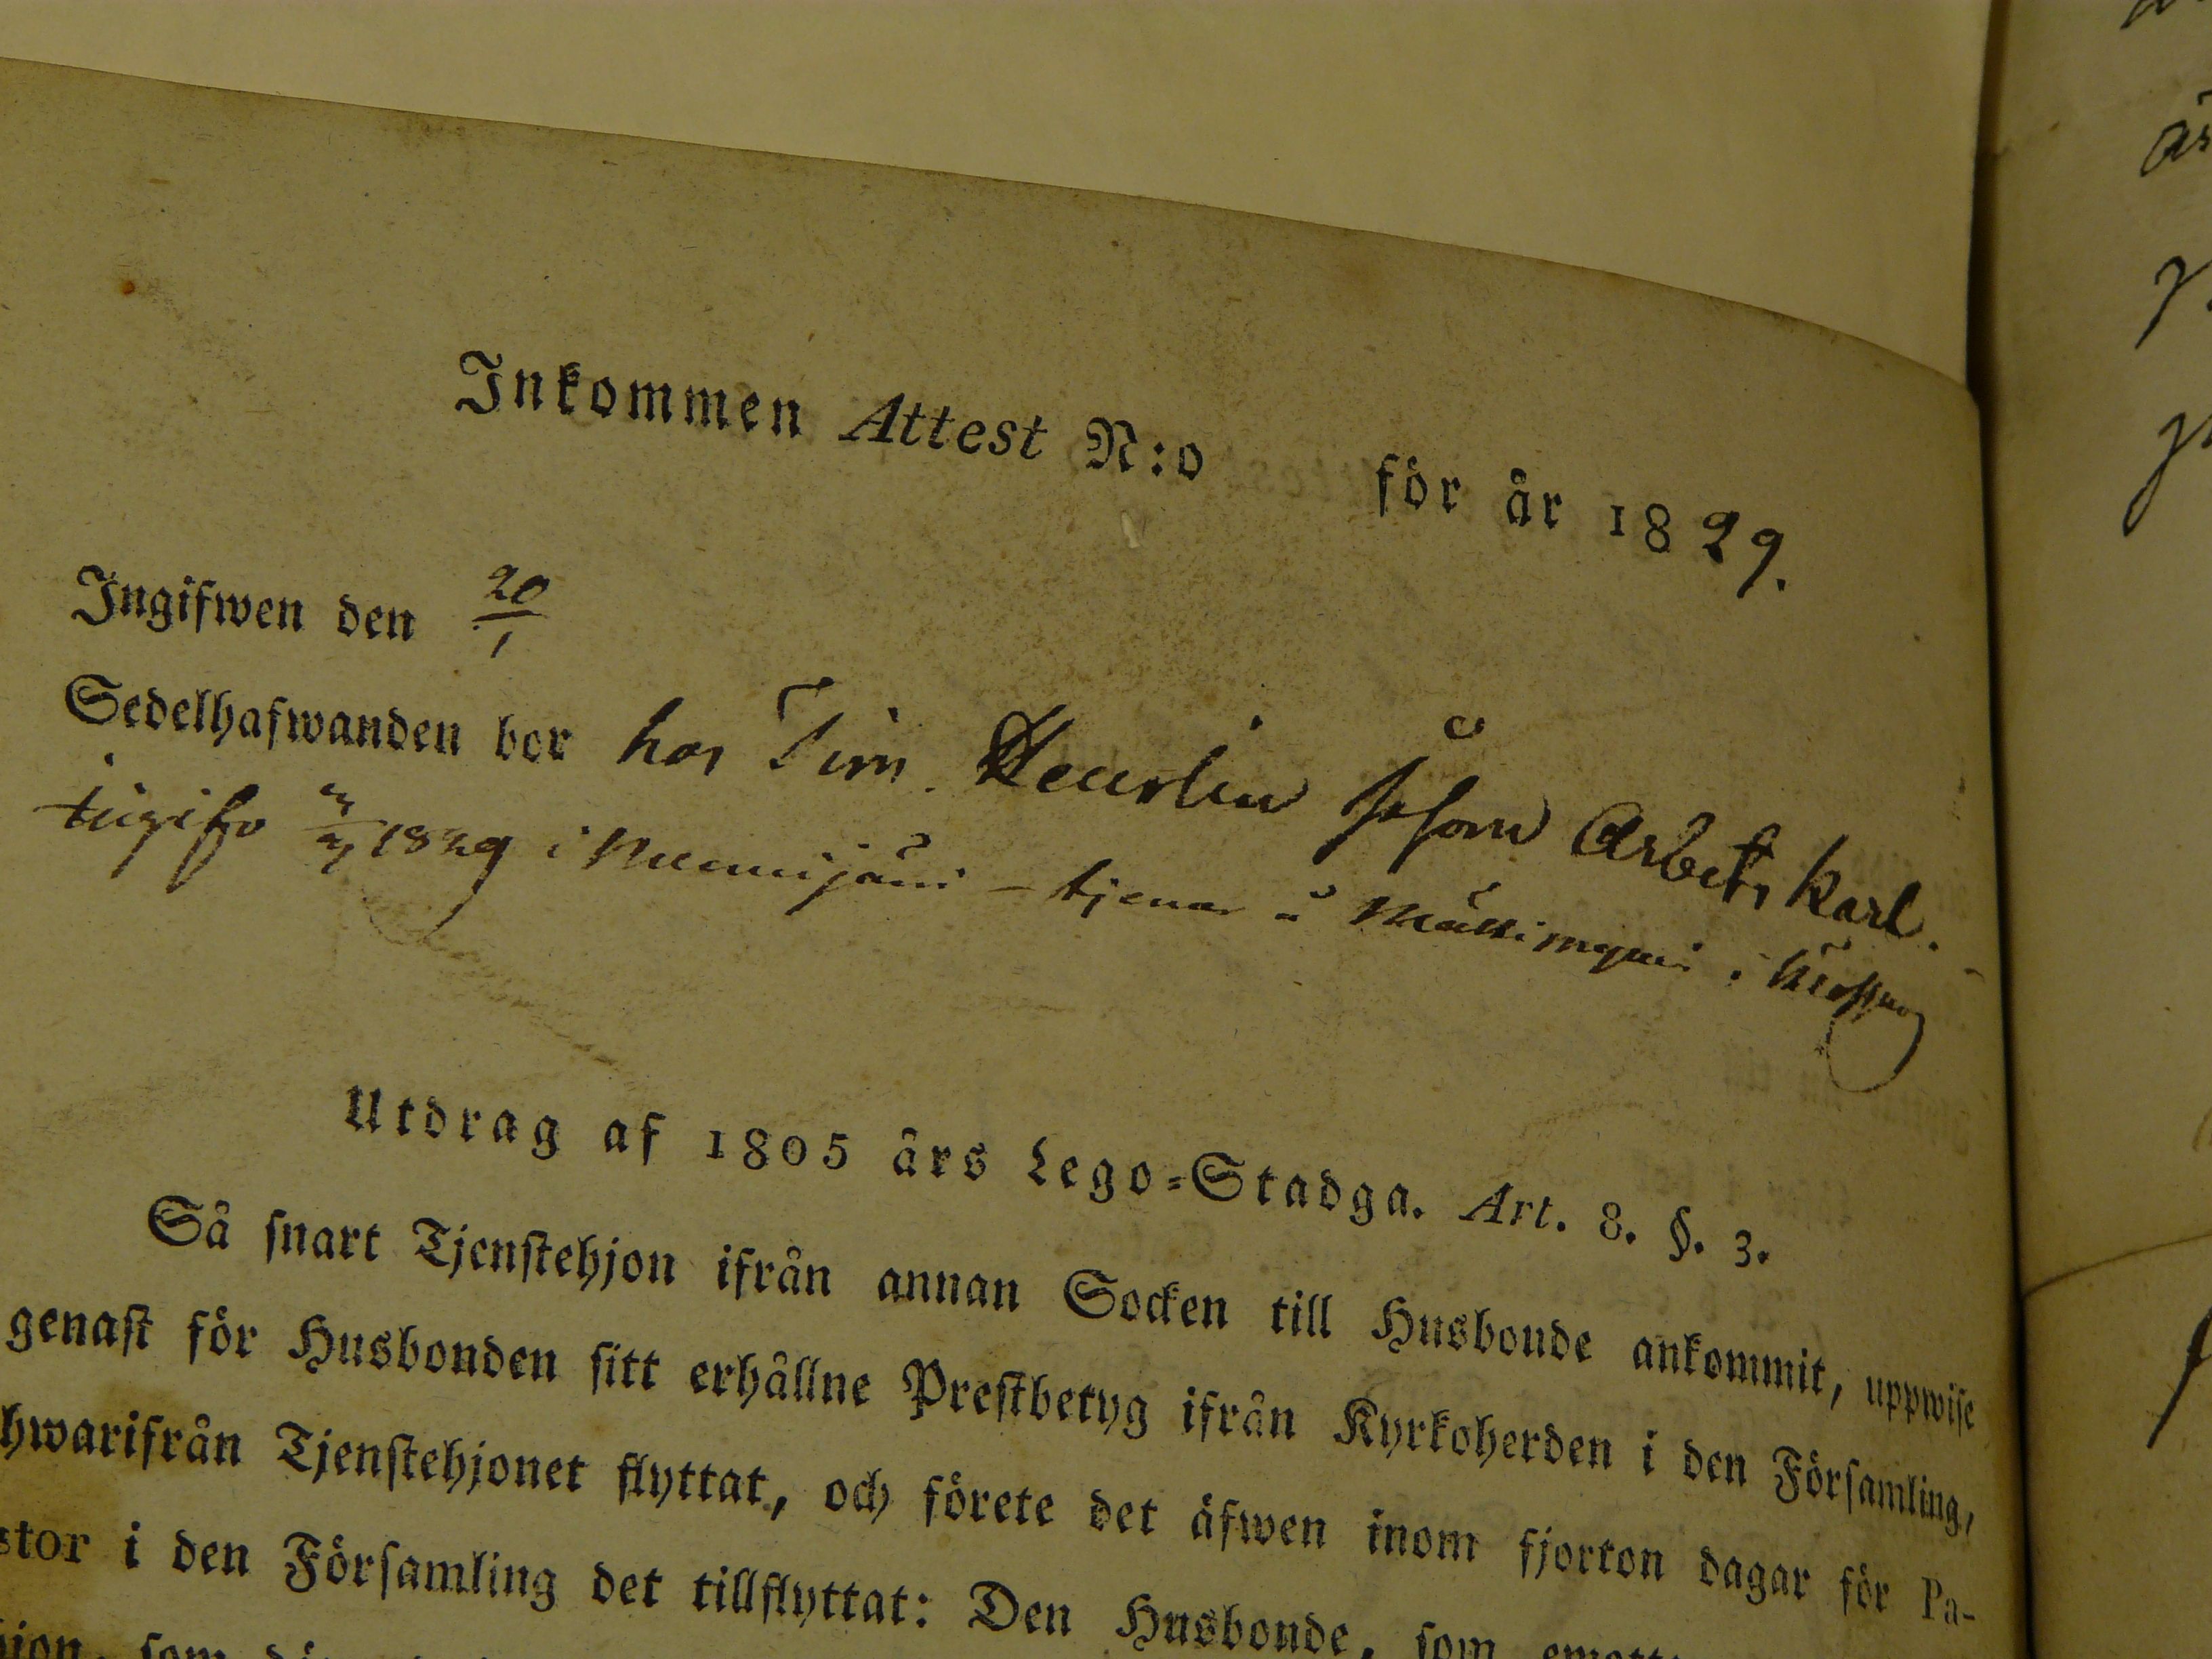 Inkommen Attest N:o för år 1829.
Ingifwen den 20/1
Sedelhafwanden bor hos Tim. Heurlin såsom Arbets karl.
1829 i Nummijärvi - tjenar å i
Utdrag af 1805 års Lego-Stadga. Art. 8. §. 3.
Så snart Tjenstehjon ifrån annan Socken till Husbonde ankommit, uppwise
genast för Husbonden sitt erhållne Prestbetyg ifrån Kyrkoherden i den Församling,
hwarifrån Tjenstehjonet flyttat, och förete det äfwen inom fjorton dagar för Pa-
stor i den Församling det tillflyttat: Den Husbonde, som
som